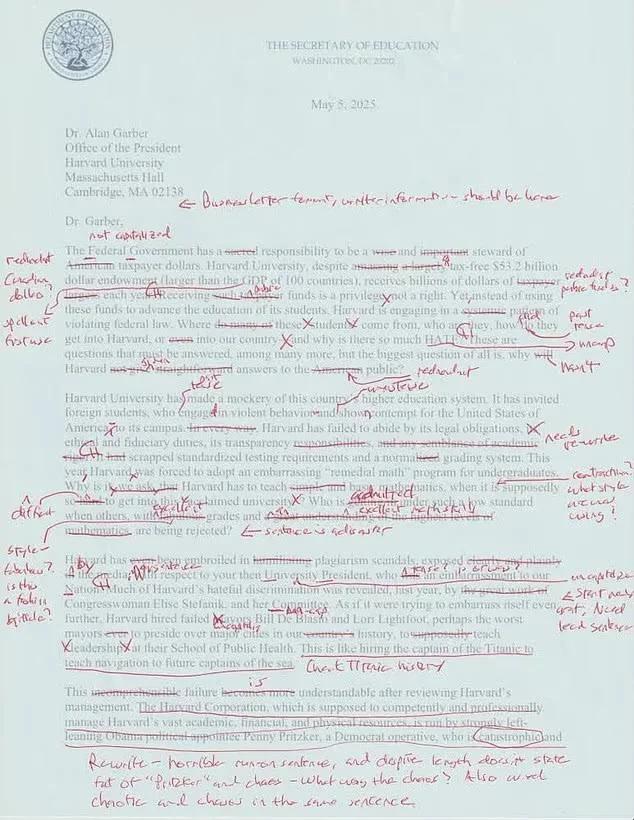 DEPARTMENT OF EDUCATION
THE SECRETARY OF EDUCATION
WASHINGTON, DC 20202
May 5, 2025
Dr. Alan Garber
Office of the President
Harvard University
Massachusetts Hall
Cambridge, MA 02138
← Business letter format, writer information should be here
Dr. Garber,
not capitalized
The Federal Government has a sacred responsibility to be a wise and important steward of
redundant
American taxpayer dollars. Harvard University, despite amassing a largely tax-free $53.2 billion
Canadian
dollars?
dollar endowment (larger than the GDP of 100 countries), receives billions of dollars of taxpayer
redundist
public funds?
each year. Receiving such funds is a privilege, not a right. Yet, instead of using
public
spell out
first use
these funds to advance the education of its students, Harvard is engaging in a systemic pattern of
violating federal law. Where do many of these students come from, who are they, how do they
did
past
tense
get into Harvard, or even into our country and why is there so much HATE? These are
uncap
questions that must be answered, among many more, but the biggest question of all is, why will
Harvard not give straightforward answers to the American public?
given
redundant
hasn't
Harvard University has made a mockery of this country's higher education system. It has invited
foreign students, who engage in violent behavior and show contempt for the United States of
America, to its campus. In every way, Harvard has failed to abide by its legal obligations, its
needs
rewrite
ethical and fiduciary duties, its transparency responsibilities, and any semblance of academic
rigor. It had scrapped standardized testing requirements and a normalized grading system. This
year Harvard was forced to adopt an embarrassing "remedial math" program for undergraduates.
Why is it, we ask, that Harvard has to teach simple and basic mathematics, when it is supposedly
contraction?
what style
are we
using?
so hard to get into this acclaimed university? Who is getting in under such a low standard
difficult
admitted
when others, with fabulous grades and a great understanding of the highest levels of
excellent
mathematics, are being rejected?
← sentence is a disaster
style -
fabulous?
is this
a fashion
article?
Harvard has been embroiled in humiliating plagiarism scandals, exposed clearly and plainly
in the media, with respect to your then University President, who was an embarrassment to our
by
tense?
Nation. Much of Harvard's hateful discrimination was revealed, last year, by the great work of
Congresswoman Elise Stefanik, and her
← Start new
As if it were trying to embarrass itself even
Need
lead sentence
further, Harvard hired failed Mayors Bill De Blasio and Lori Lightfoot, perhaps the worst
mayors ever to preside over major cities in our country's history, to supposedly teach
"leadership" at their School of Public Health. This is like hiring the captain of the Titanic to
teach navigation to future captains of the sea.
Check Titanic history
is
This incomprehensible failure becomes more understandable after reviewing Harvard's
management. The Harvard Corporation, which is supposed to competently and professionally
manage Harvard's vast academic, financial, and physical resources, is run by strongly left-
leaning Obama political appointee Penny Pritzker, a Democrat operative, who is catastrophic and
Rewrite - horrible run on sentence, and despite length doesn't state
of "Pritzker" and chaos - What was the chaos? Also used
chaotic and chaos in the same sentence.